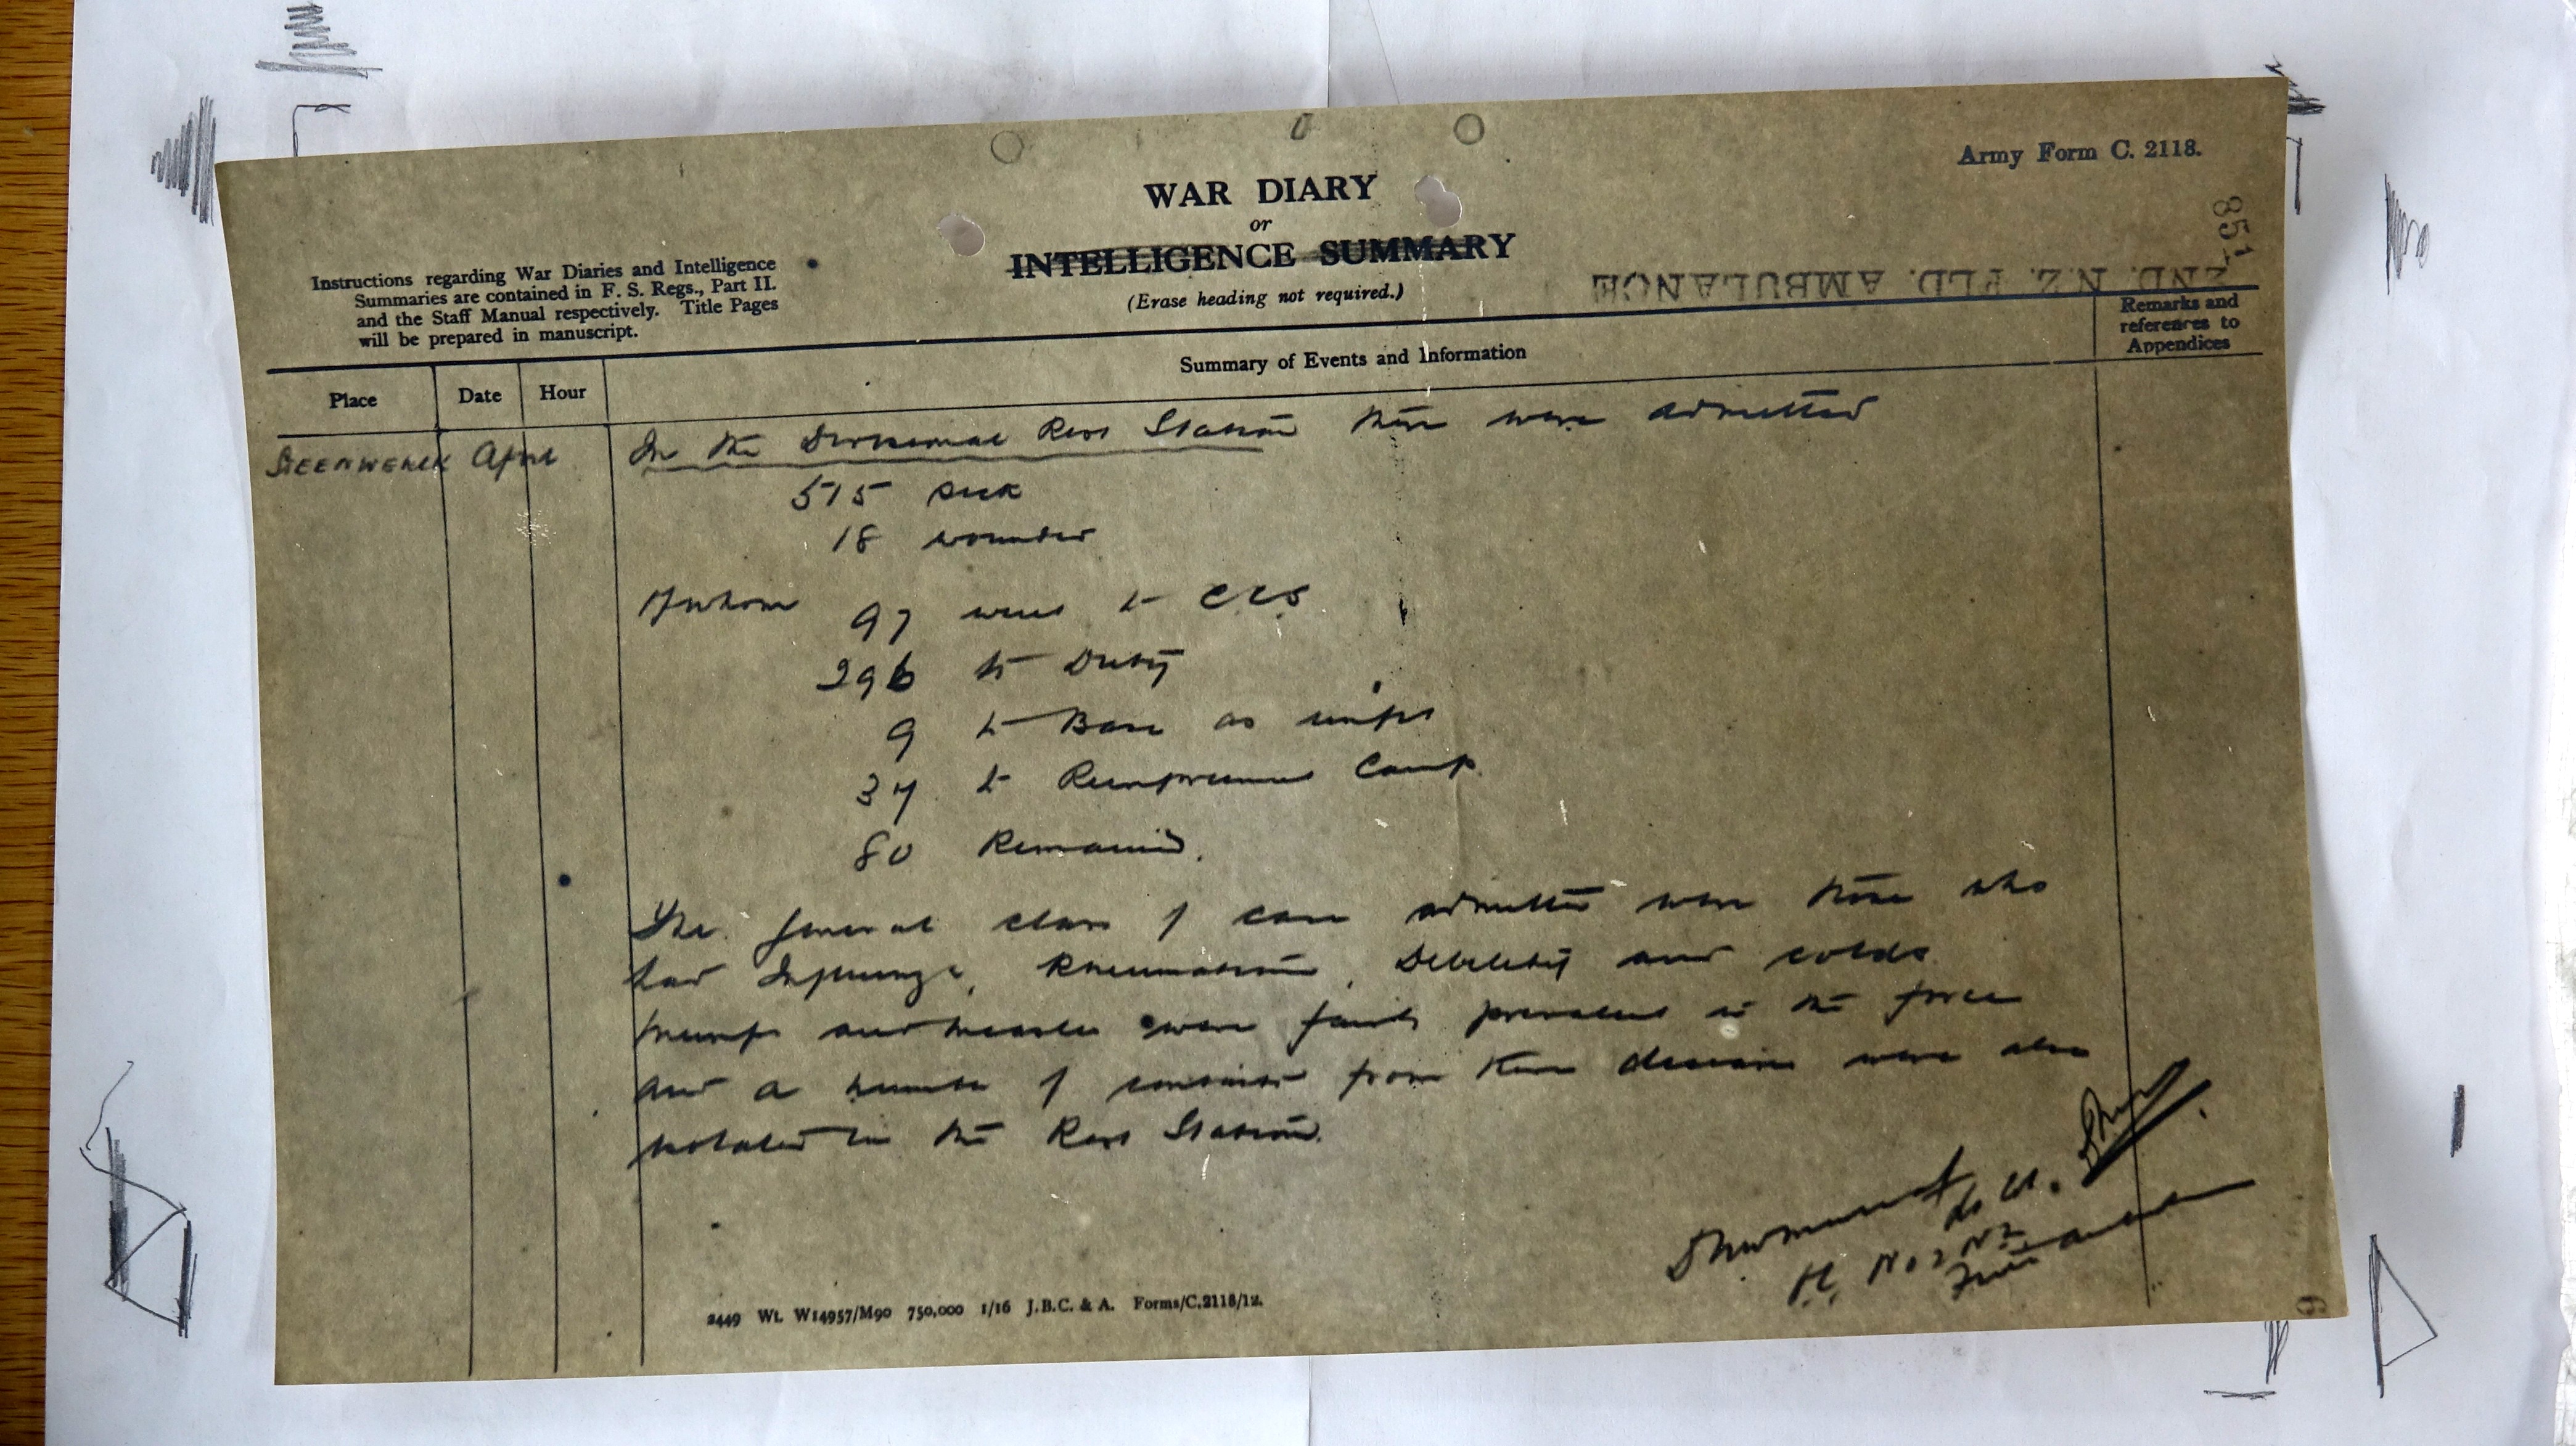 Army Form C. 2118.
851
WAR DIARY
or
INTELLIGENCE SUMMARY
(Erase heading not required.)
2ND. N.Z. FLD. AMBULANCE
Instructions regarding War Diaries and Intelligence
Summaries are contained in F. S. Regs., Part II.
and the Staff Manual respectively. Title Pages
will be prepared in manuscript.
Remarks and
references to
Appendices
Summary of Events and Information
Place Date Hour
STEENWERCK April In the Divisional Rest Station there were admitted
515 sick
18 wounded
Of whom 97 went to CCS
296 to Duty
9 to Base as unfit
34 to Reinforcement Camp
80 Remained.
The general class of case admitted were those who
had Influenza, Rheumatism, Debility and colds
mumps and measles were fairly prevalent in the force
and a number of contacts from these diseases were also
isolated in the Rest Station.
Lt Col.
No 2 NZ
2449 Wt. W14957/M90 750,000 1/16 J.B.C. & A. Forms/C.2118/12.